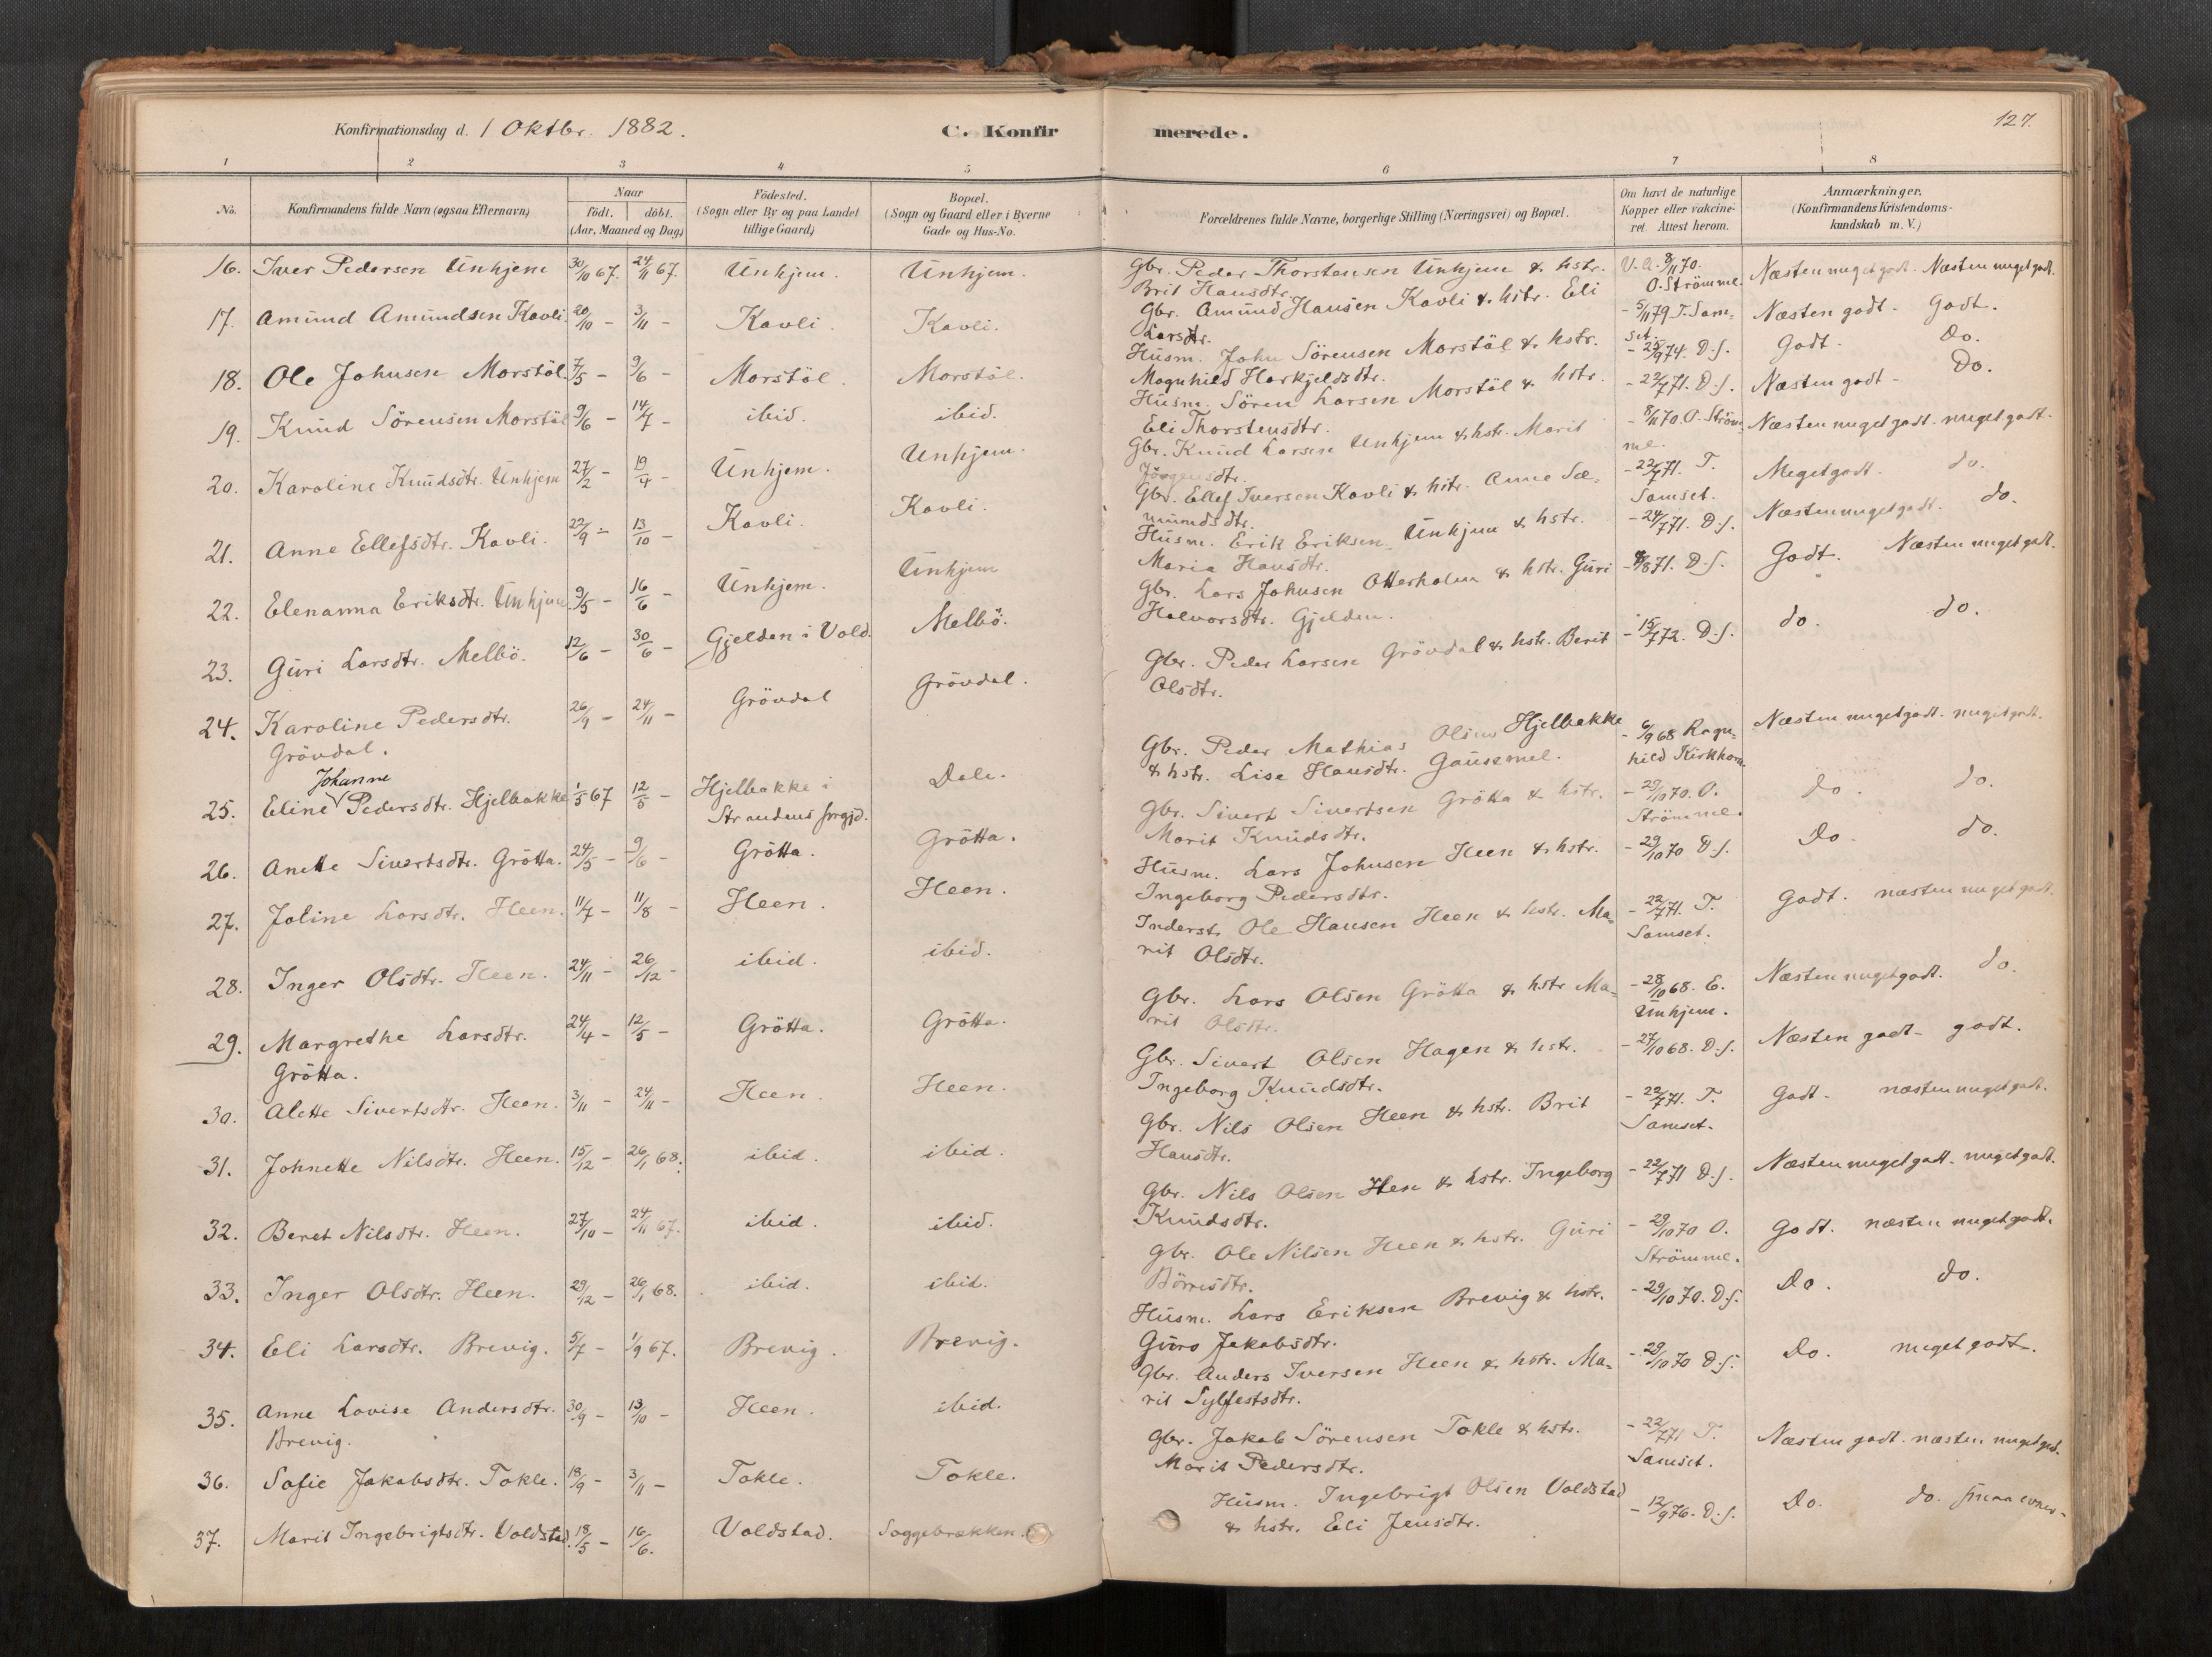 Konfirmationsdag d. 1 Oktbr. 1882. C. Konfirmerede. 127.
1 2 3 4 5 6 7 8
No. Konfirmandens fulde Navn (ogsaa Efternavn) Naar födt. döbt. (Aar, Maaned og Dag) Födested. (Sogn eller By og paa Landet tillige Gaard) Bopæl. (Sogn og Gaard eller i Byerne Gade og Hus-No. Forældrenes fulde Navne, borgerlige Stilling (Næringsvei) og Bopæl. Om havt de naturlige Kopper eller vakcineret. Attest herom. Anmærkninger. (Konfirmandens Kristendomskundskab m. V.)
16. Iver Pedersen Unhjem 30/10 67. 24/11 67. Unhjem. Unhjem. Gbr. Peder Thorstensen Unhjem & hstr. V. a. 8/11 70. Næsten meget godt. Næsten meget godt.
Brit Hansdtr. O. Strömme.
17. Amund Amundsen Kavli. 20/10 - 3/11 - Kavli. Kavli. Gbr. Amund Hansen Kavli & hstr. Eli - 5/11 79 T. Sam= Næsten godt. Godt.
Larsdtr. set.
18. Ole Johnsen Morstöl. 7/5 - 9/6 - Morstöl. Morstöl. Husm. John Sörensen Morstöl & hstr. - 25/9 74. D.s. Godt. Do.
Magnhild Harkjeldsdtr.
19. Knud Sörensen Morstöl 9/6 - 14/7 - ibid. ibid. Husm. Sören Larsen Morstöl & hstr. - 22/7 71. D.s. Næsten godt - Do.
Eli Thorstensdtr.
20. Karoline Knudsdtr. Unhjem 27/2 - 19/4 - Unhjem. Unhjem. Gbr. Knud Larsen Unhjem & hstr. Marit - 8/11 70. O. Ström= Næsten meget godt. meget godt.
Jörgensdtr. me.
21. Anne Ellefsdtr. Kavli. 22/9 - 13/10 - Kavli. Kavli. Gbr. Ellef Iversen Kavli & hstr. Anne Sæ= - 22/7 71. T. Meget godt. do.
mundsdtr. Samset.
22. Elenanna Eriksdtr. Unhjem. 9/5 - 16/6 - Unhjem. Unhjem Husm. Erik Eriksen Unhjem & hstr. - 24/7 71. D.s. Næsten meget godt. do.
Maria Hansdtr.
23. Guri Larsdtr. Melbö. 12/6 - 30/6 - Gjelden i Vold. Melbö. Gbr. Lars Johnsen Otterholm & hstr. Guri /8 71. D.s. Godt. Næsten meget godt.
Halvorsdtr. Gjelden.
24. Karoline Pedersdtr. 26/9 - 24/11 - Grövdal Grövdal. Gbr. Peder Larsen Grövdal & hstr. Berit - 15/7 72. D.s. do. do.
Grövdal. Olsdtr.
Johanne
25. Eline Pedersdtr. Hjelbakke 1/5 67 12/5 - Hjelbakke i Dale. Gbr. Peder Mathias Olsen Hjelbakke - 6/9 68 Ragn= Næsten meget godt. meget godt.
Strandens prgjd. & hstr. Lise Hansdtr. Gausemel. hild Kirkhorn.
26. Anette Sivertsdtr. Grötta. 24/5 - 9/6 - Grötta. Grötta. Gbr. Sivert Sivertsen Grötta & hstr. - 29/10 70. O. do. do.
Marit Knudsdtr. Strömme.
27. Joline Larsdtr. Heen. 11/7 - 11/8 - Heen. Heen. Husm. Lars Johnsen Heen & hstr. - 29/10 70 D.s. Do. do.
Ingeborg Pedersdtr.
28. Inger Olsdtr. Heen. 24/11 - 26/12 - ibid. ibid. Inderst. Ole Hansen Heen & hstr. Ma= - 22/7 71. T. Godt. næsten meget godt.
rit Olsdtr. Samset.
29. Margrethe Larsdtr. 24/4 - 12/5 - Grötta. Grötta. Gbr. Lars Olsen Grötta & hstr Ma= - 28/10 68. E. Næsten meget godt. do.
Grötta. rit Olsdtr. Unhjem.
30. Alette Sivertsdtr. Heen. 3/11 - 24/11 - Heen. Heen. Gbr. Sivert Olsen Hagen & hstr. - 27/10 68. D.s. Næsten godt - godt.
Ingeborg Knudsdtr.
31. Johnette Nilsdtr. Heen. 15/12 - 26/1 68. ibid. ibid. Gbr. Nils Olsen Heen & hstr. Brit - 22/7 71. T. Godt - næsten meget godt.
Hansdtr. Samset.
32. Beret Nilsdtr. Heen. 27/10 - 24/11 67. ibid. ibid. Gbr. Nils Olsen Hen & hstr. Ingeborg - 22/7 71 D.s. Næsten meget godt. meget godt.
Knudsdtr.
33. Inger Olsdtr. Heen. 29/12 - 26/1 68. ibid. ibid. Gbr. Ole Nilsen Heen & hstr. Guri - 29/10 70 O. Godt. næsten meget godt.
Börresdtr. Strömme.
34. Eli Larsdtr. Brevig. 5/7 - 1/9 67. Brevig. Brevig. Husm. Lars Eriksen Brevig & hstr. - 29/10 70. D.s. Do. do.
Guro Jakobsdtr.
35. Anne Lovise Andersdtr. 30/9 - 13/10 - Heen. ibid. Gbr. Anders Iversen Heen & hstr. Ma= - 29/10 70 D.s. Do. meget godt.
Brevig. rit Sylfestsdtr.
36. Sofie Jakobsdtr. Tokle. 18/9 - 3/11 - Tokle. Tokle. Gbr. Jakob Sörensen Tokle & hstr. - 22/7 71 T. Næsten godt. næsten meget godt.
Marit Pedersdtr. Samset.
37. Marit Ingebrigtsdtr. Voldstad. 18/5 - 16/6. Voldstad. Soggebrækken. Husm. Ingebrigt Olsen Voldstad - 12/9 76. D.s. Do. do. smaa evner.
& hstr. Eli Jensdtr.